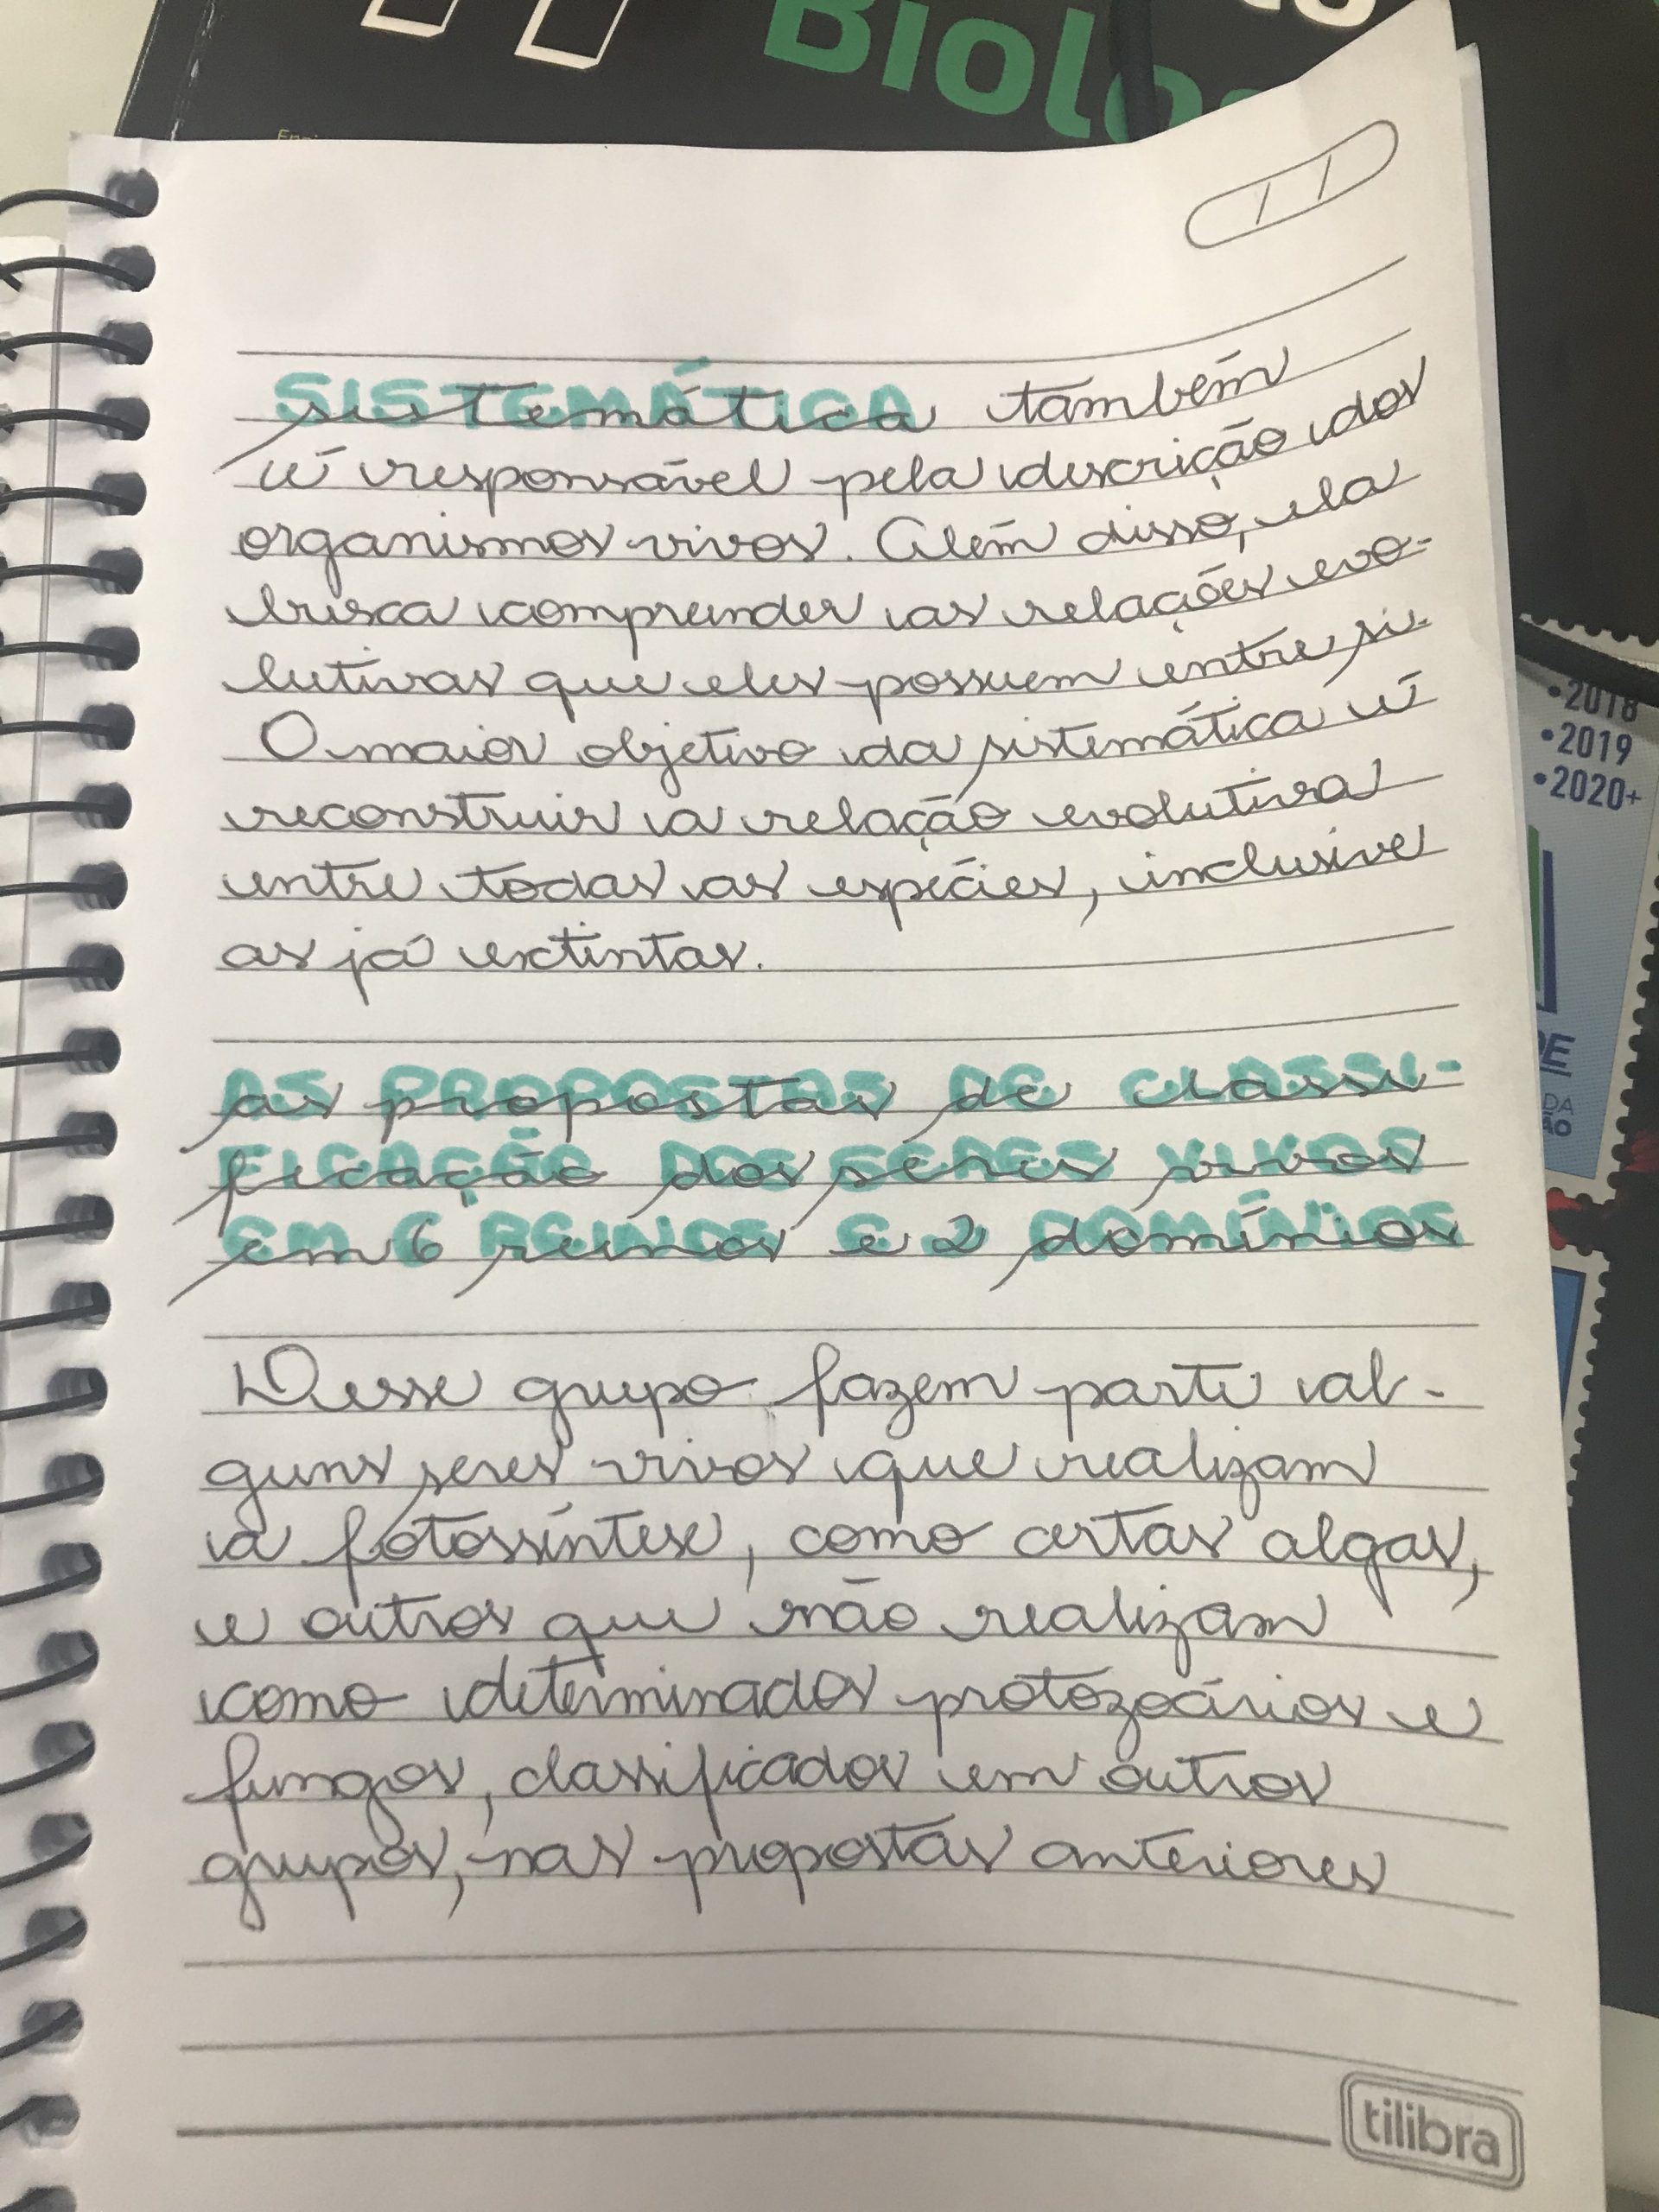 Biolo
SISTEMÁTICA
sistemática também
é responsável pela descrição dos
organismos vivos. Além disso, ela
busca compreender as relações evo-
lutivas que eles possuem entre si.
O maior objetivo da sistemática é
reconstruir a relação evolutiva
entre todas as espécies, inclusive
as já extintas.
AS PROPOSTAS DE CLASSI-
as propostas de classi-
FICAÇÃO DOS SERES VIVOS
ficação dos seres vivos
EM 6 REINOS E 2 DOMÍNIOS
em 6 reinos e 2 domínios
Desse grupo fazem parte al-
guns seres vivos que realizam
a fotossíntese, como certas algas,
e outros que não realizam
como determinados protozoários e
fungos, classificados em outros
grupos, nas propostas anteriores
tilibra
•2018
•2019
•2020+
DE
DA
ÃO